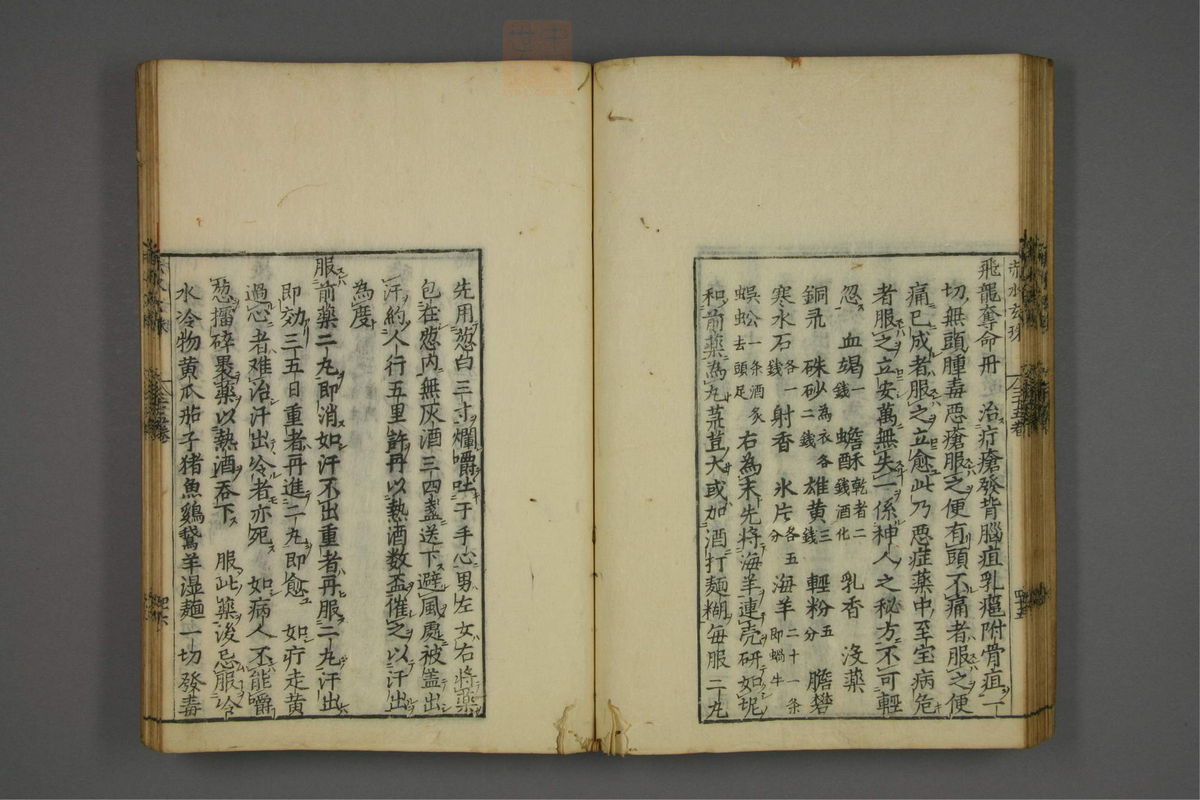 赤水玄珠
飛龍奪命丹　治疔瘡發背腦疽乳癰附骨疽一
切無頭腫毒惡瘡服之便有頭不痛者服之便
痛已成者服之立愈此乃惡症藥中至宝病危
者服之立安萬無失一係神人之秘方不可輕
忽　血竭一錢　蟾酥乾者二錢酒化　乳香　沒藥
銅录　硃砂二錢為衣各　雄黃三錢　輕粉五分　膽礬
寒水石各一錢　射香　氷片各五分　海羊二十一条即蝸牛
蜈蚣一条酒炙去頭足　右為末先將海羊連壳研如坭
和前藥為丸菉荳大或加酒打麵糊每服二丸
先用葱白三寸爛嚼吐于手心男左女右將藥
包在葱内無灰酒三四盞送下避風處被盖出
汗約人行五里許再以熱酒数盃催之以汗出
為度
服前藥二丸即消如汗不出重者再服二丸汗出
即効三五日重者再進二丸即愈　如疔走黄
過心者难治汗出冷者亦死　如病人不能嚼
葱擂碎裹藥以熱酒吞下　服此藥後忌服冷
水冷物黄瓜茄子猪魚鷄鵞羊湿麵一切發毒